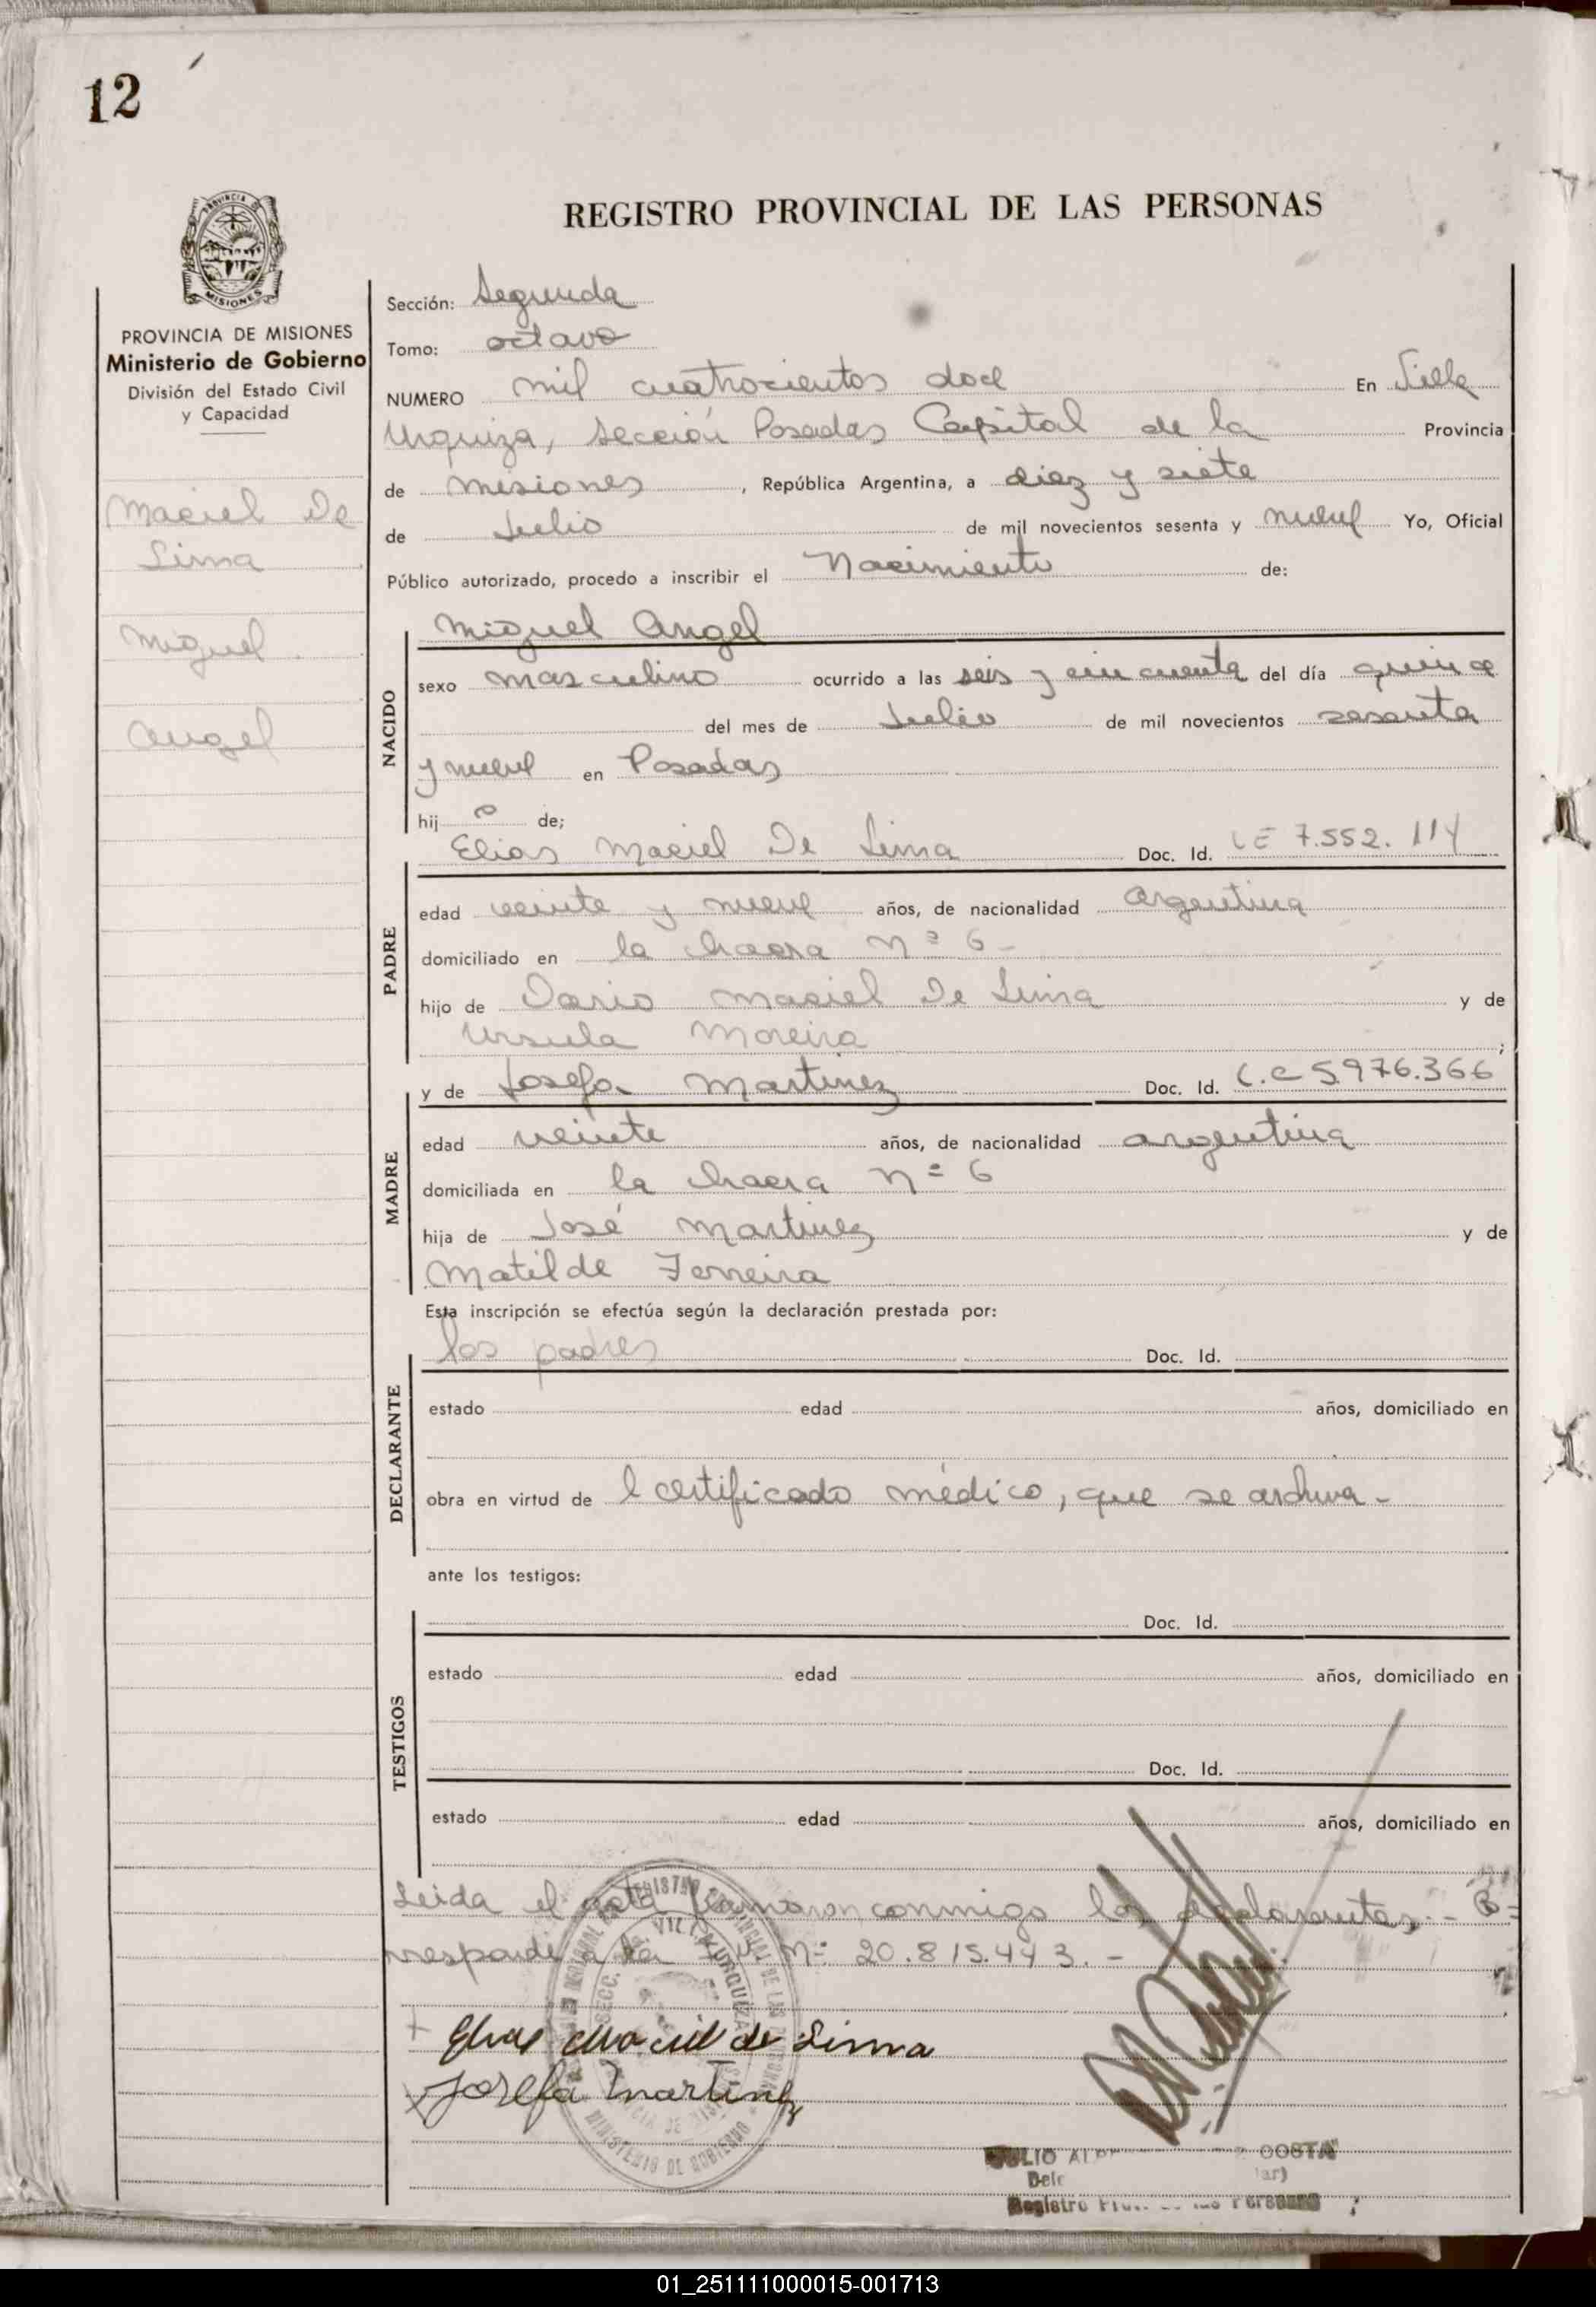 12
REGISTRO PROVINCIAL DE LAS PERSONAS
PROVINCIA DE MISIONES
Ministerio de Gobierno
División del Estado Civil
y Capacidad
Maciel De
Lima
Miguel
Angel
Sección: Segunda
Tomo: octavo
NUMERO mil cuatrocientos doce En Villa
Urquiza, Sección Posadas Capital de la Provincia
de Misiones, República Argentina, a diez y siete
de Julio de mil novecientos sesenta y nueve Yo, Oficial
Público autorizado, procedo a inscribir el Nacimiento de:
Miguel Angel
NACIDO
sexo masculino ocurrido a las seis y cincuenta del día quince
del mes de Julio de mil novecientos sesenta
y nueve en Posadas
hij o de;
Elias Maciel De Lima Doc. Id. LE 7.552.114
PADRE
edad veinte y nueve años, de nacionalidad argentina
domiciliado en la chacra nº 6 -
hijo de Dario Maciel De Lima y de
Ursula Moreira ;
y de Josefa Martinez Doc. Id. C.C 5.976.366
MADRE
edad veinte años, de nacionalidad argentina
domiciliada en la chacra nº 6
hija de José Martinez y de
Matilde Ferreira
Esta inscripción se efectúa según la declaración prestada por:
los padres Doc. Id.
DECLARANTE
estado edad años, domiciliado en
obra en virtud de l certificado médico, que se archiva -
ante los testigos:
Doc. Id.
TESTIGOS
estado edad años, domiciliado en
Doc. Id.
estado edad años, domiciliado en
Leida el acta firmaron conmigo los declarantes.- Co=
rresponde a la Nº 20.815.443.-
Elias Maciel de Lima
Josefa Martinez
JULIO COSTA
Registro
01_251111000015-001713